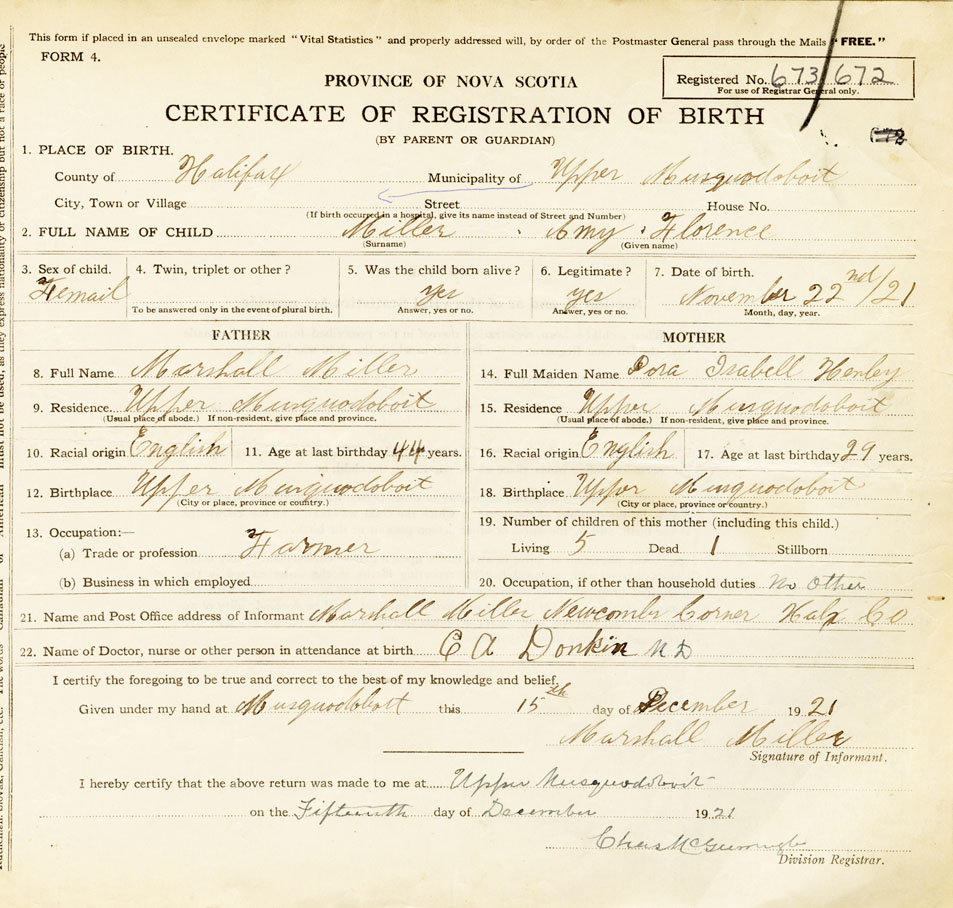 This form if placed in an unsealed envelope marked "Vital Statistics" and properly addressed will, by order of the Postmaster General pass through the Mails "FREE."
FORM 4.
PROVINCE OF NOVA SCOTIA
Registered No. 673/672
For use of Registrar General only.
CERTIFICATE OF REGISTRATION OF BIRTH
(BY PARENT OR GUARDIAN)
1. PLACE OF BIRTH.
County of Halifax Municipality of Upper Musquodoboit
City, Town or Village Street House No.
(If birth occurred in a hospital, give its name instead of Street and Number)
2. FULL NAME OF CHILD Miller Amy Florence
(Surname) (Given name)
3. Sex of child. 4. Twin, triplet or other? 5. Was the child born alive? 6. Legitimate? 7. Date of birth.
Femail yes yes November 22nd/21
To be answered only in the event of plural birth. Answer, yes or no. Answer, yes or no. Month, day, year.
FATHER MOTHER
8. Full Name Marshall Miller
14. Full Maiden Name Dora Isabell Henley
9. Residence. Upper Musquodoboit
15. Residence Upper Musquodoboit
(Usual place of abode.) If non-resident, give place and province.
(Usual place of abode.) If non-resident, give place and province.
10. Racial origin English 11. Age at last birthday 44 years.
16. Racial origin English 17. Age at last birthday 29 years.
12. Birthplace Upper Musquodoboit
18. Birthplace Upper Musquodoboit
(City or place, province or country.)
(City or place, province or country.)
13. Occupation:—
(a) Trade or profession Farmer
(b) Business in which employed
19. Number of children of this mother (including this child.)
Living 5 Dead 1 Stillborn
20. Occupation, if other than household duties No Other
21. Name and Post Office address of Informant Marshall Miller Newcombs Corner Halx Co
22. Name of Doctor, nurse or other person in attendance at birth. E A Donkin M D
I certify the foregoing to be true and correct to the best of my knowledge and belief.
Given under my hand at Musquodoboit this 15th day of December 1921
Marshall Miller
Signature of Informant.
I hereby certify that the above return was made to me at Upper Musquodoboit
on the Fifteenth day of December 1921
Chas
Division Registrar.